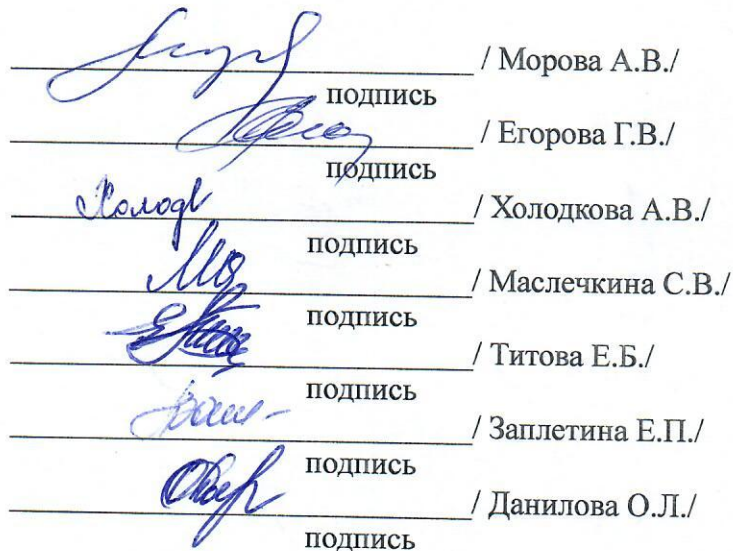 / Морова А.В./
подпись
/ Егорова Г.В./
подпись
Холодк / Холодкова А.В./
подпись
/ Маслечкина С.В./
подпись
/ Титова Е.Б./
подпись
/ Заплетина Е.П./
подпись
/ Данилова О.Л./
подпись